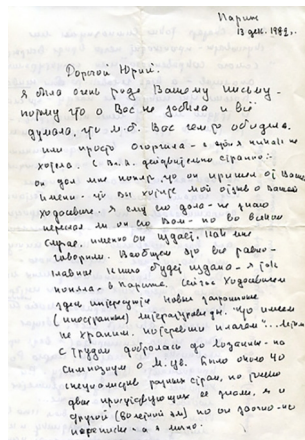 Париж
13 дек. 1982 г.
Дорогой Юрий.
Я была очень рада Вашему письму.
потому что о Вас не забыла и всё
думала, что м.б. Вас чем то обидела
или просто огорчила - а этого никак не
хотела. С Вл. В. действительно странно:
он дал мне понять, что он пришел от Вашего
имени - что Вы хотите мой отзыв о Вашей
Ходасевиче. Я ему его дала - не знаю
передал ли он его Вам - но во всяком
случае, именно он издаёт, как мне
говорили. Вообщем это всё равно -
главное чтобы будет издана - я так
поняла - в Париже. Сейчас Ходасевичем
здесь интересуются новые
(иностранные) литературоведы. Что имеем
не храним, потерявши плачем...
с трудом добралась до Лозанны - на
симпозиум о М. Цв. Было около 40
специалистов разных стран, но только
двое присутствующих её знали, я и
другой
переписке - а я лично.